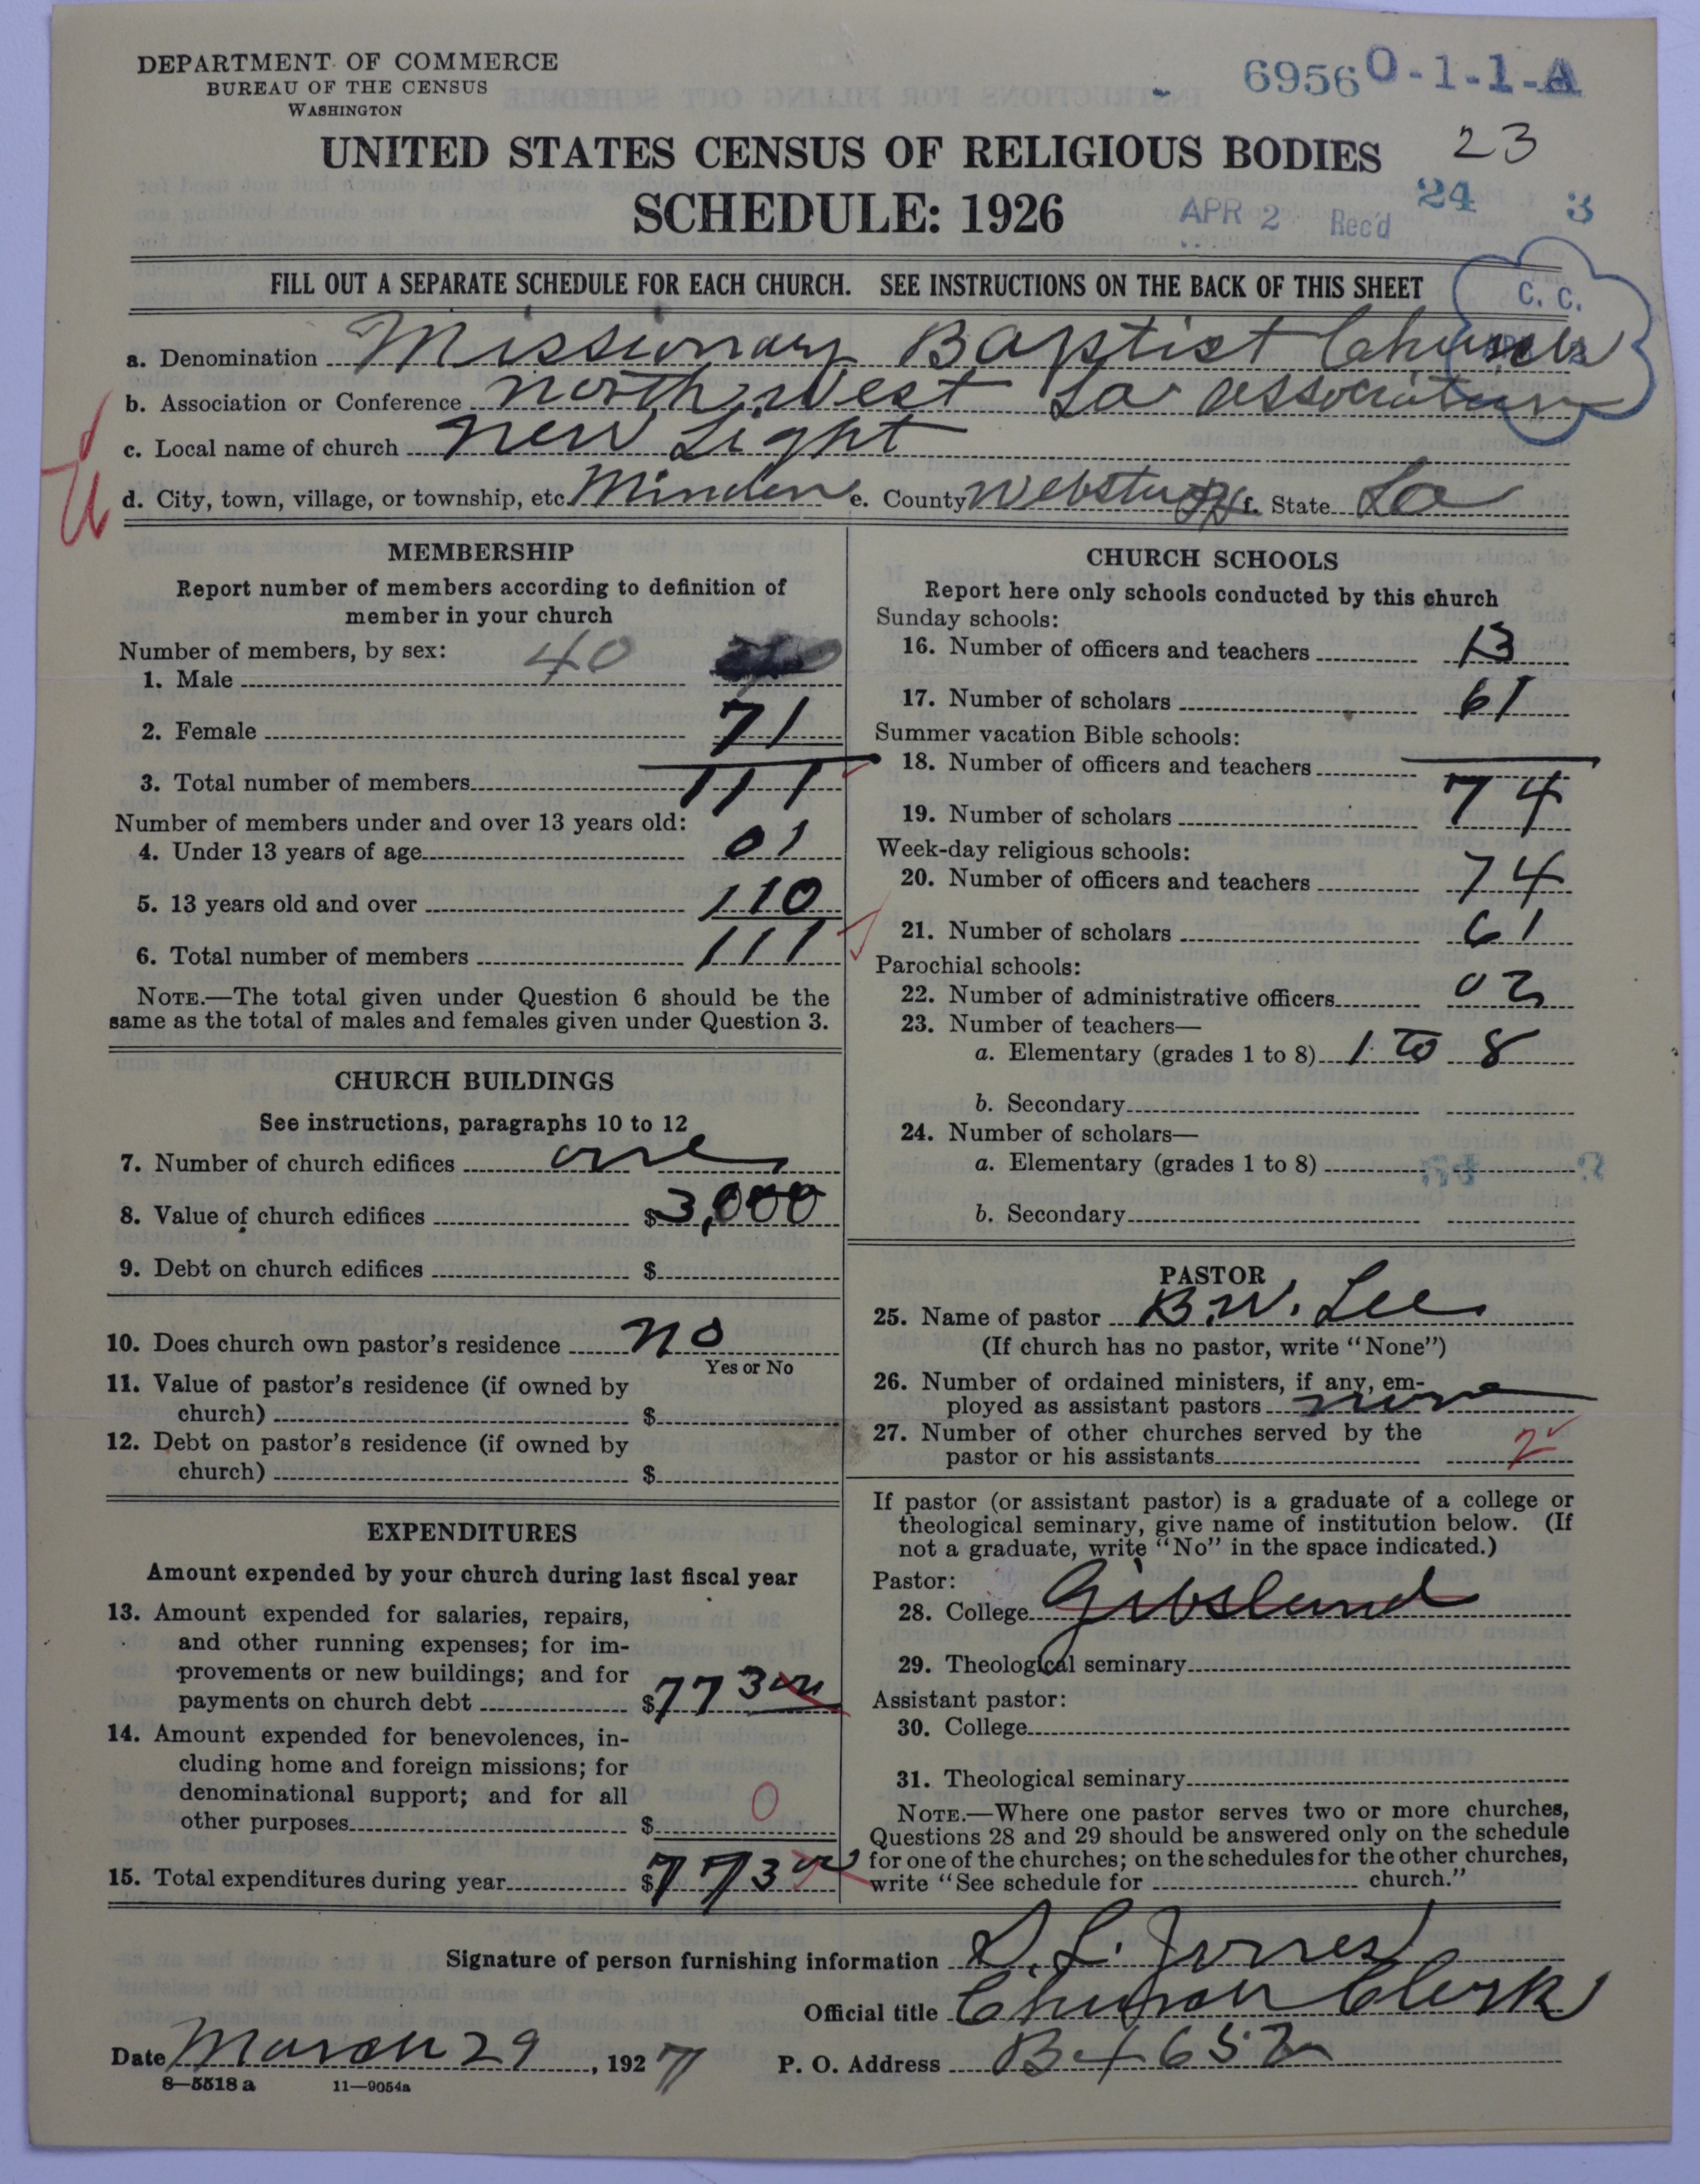 DEPARTMENT OF COMMERCE
BUREAU OF THE CENSUS
WASHINGTON
6956 0-1-1-A
UNITED STATES CENSUS OF RELIGIOUS BODIES
23
SCHEDULE: 1926
APR 2 Rec'd
24 3
FILL OUT A SEPARATE SCHEDULE FOR EACH CHURCH. SEE INSTRUCTIONS ON THE BACK OF THIS SHEET
C. C.
a. Denomination Missionary Baptist Church
b. Association or Conference north West La association
c. Local name of church new Light
d. City, town, village, or township, etc. Minden e. County Webster f. State La
MEMBERSHIP
Report number of members according to definition of
member in your church
Number of members, by sex:
1. Male 40
2. Female 71
3. Total number of members 111
Number of members under and over 13 years old:
4. Under 13 years of age 01
5. 13 years old and over 110
6. Total number of members 111
NOTE.—The total given under Question 6 should be the
same as the total of males and females given under Question 3.
CHURCH BUILDINGS
See instructions, paragraphs 10 to 12
7. Number of church edifices one
8. Value of church edifices $3,000
9. Debt on church edifices $
10. Does church own pastor's residence no
Yes or No
11. Value of pastor's residence (if owned by
church) $
12. Debt on pastor's residence (if owned by
church) $
EXPENDITURES
Amount expended by your church during last fiscal year
13. Amount expended for salaries, repairs,
and other running expenses; for im-
provements or new buildings; and for
payments on church debt $773 00
14. Amount expended for benevolences, in-
cluding home and foreign missions; for
denominational support; and for all
other purposes $ 0
15. Total expenditures during year $773 00
CHURCH SCHOOLS
Report here only schools conducted by this church
Sunday schools:
16. Number of officers and teachers 13
17. Number of scholars 61
Summer vacation Bible schools:
18. Number of officers and teachers
19. Number of scholars 74
Week-day religious schools:
20. Number of officers and teachers 74
21. Number of scholars 61
Parochial schools:
22. Number of administrative officers 02
23. Number of teachers—
a. Elementary (grades 1 to 8) 1 to 8
b. Secondary
24. Number of scholars—
a. Elementary (grades 1 to 8)
b. Secondary
PASTOR
25. Name of pastor B.W. Lee
(If church has no pastor, write "None")
26. Number of ordained ministers, if any, em-
ployed as assistant pastors none
27. Number of other churches served by the
pastor or his assistants 2
If pastor (or assistant pastor) is a graduate of a college or
theological seminary, give name of institution below. (If
not a graduate, write "No" in the space indicated.)
Pastor:
28. College Gibsland
29. Theological seminary
Assistant pastor:
30. College
31. Theological seminary
NOTE.—Where one pastor serves two or more churches,
Questions 28 and 29 should be answered only on the schedule
for one of the churches; on the schedules for the other churches,
write "See schedule for church."
Signature of person furnishing information S. L. Jones
Official title Church Clerk
Date March 29, 1927 P. O. Address Bx 652
8—5518 a 11—9054a